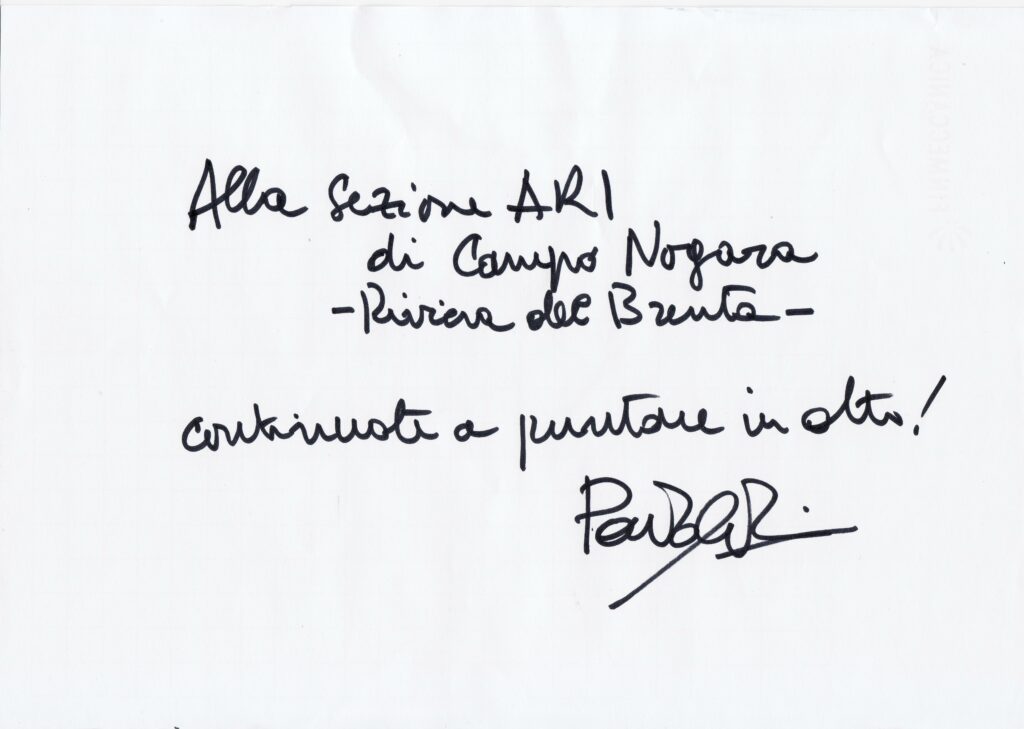 Alla Sezione ARI
di Campo Nogara
- Riviera del Brenta -
continuate a puntare in alto!
FINMECCANICA